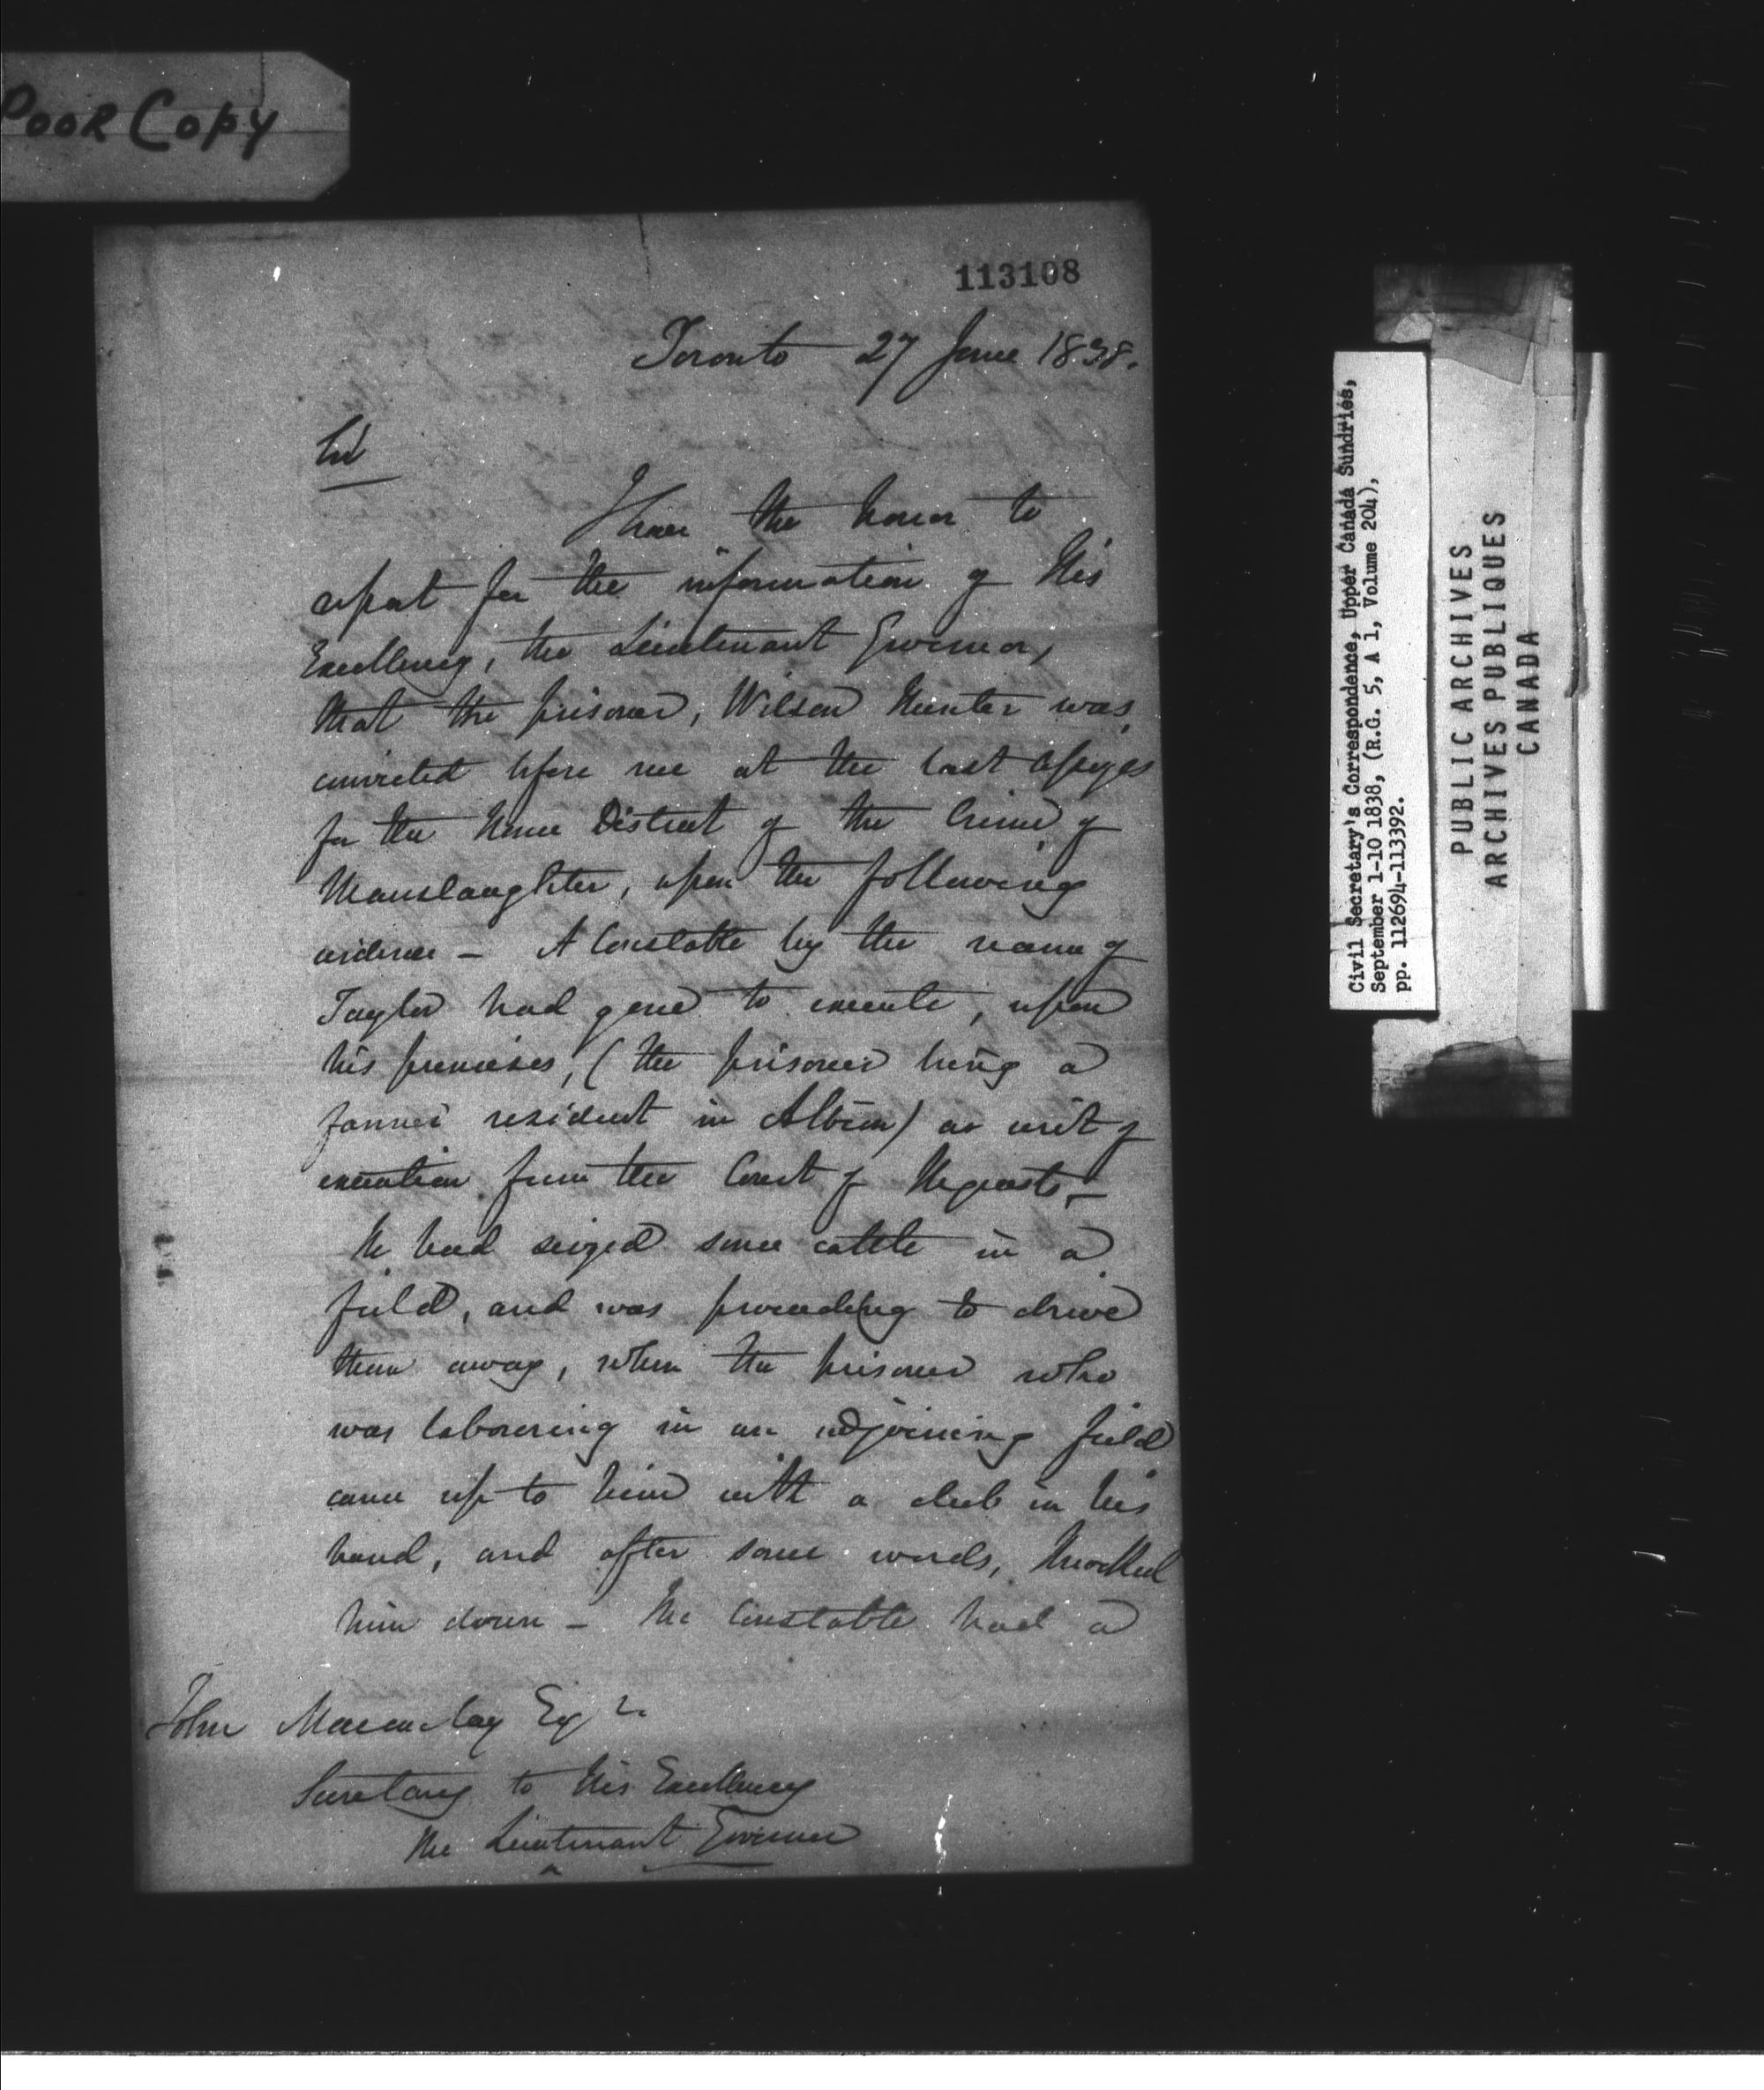 Poor Copy
113108
Toronto 27 June 1838.
Sir
I have the honor to
report for the information of His
Excellency, the Lieutenant Governor,
that the prisoner, Wilson Hunter was
convicted before me at the last Assizes
for the Home District of the Crime of
Manslaughter, upon the following
evidence – A Constable by the name of
Taylor had gone to execute, upon
his premises, (the prisoner being a
farmer resident in Albion) a writ of
execution from the Court of Requests –
He had seized some cattle in a
field, and was proceeding to drive
them away, when the prisoner who
was labouring in an adjoining field
came up to him with a club in his
hand, and after some words, knocked
him down – The Constable had a
John Macaulay Esqr.
Secretary to His Excellency
The Lieutenant Governor
Civil Secretary's Correspondence, Upper Canada Sundries,
September 1-10 1838, (R.G. 5, A 1, Volume 204),
pp. 112694-113392.
PUBLIC ARCHIVES
ARCHIVES PUBLIQUES
CANADA